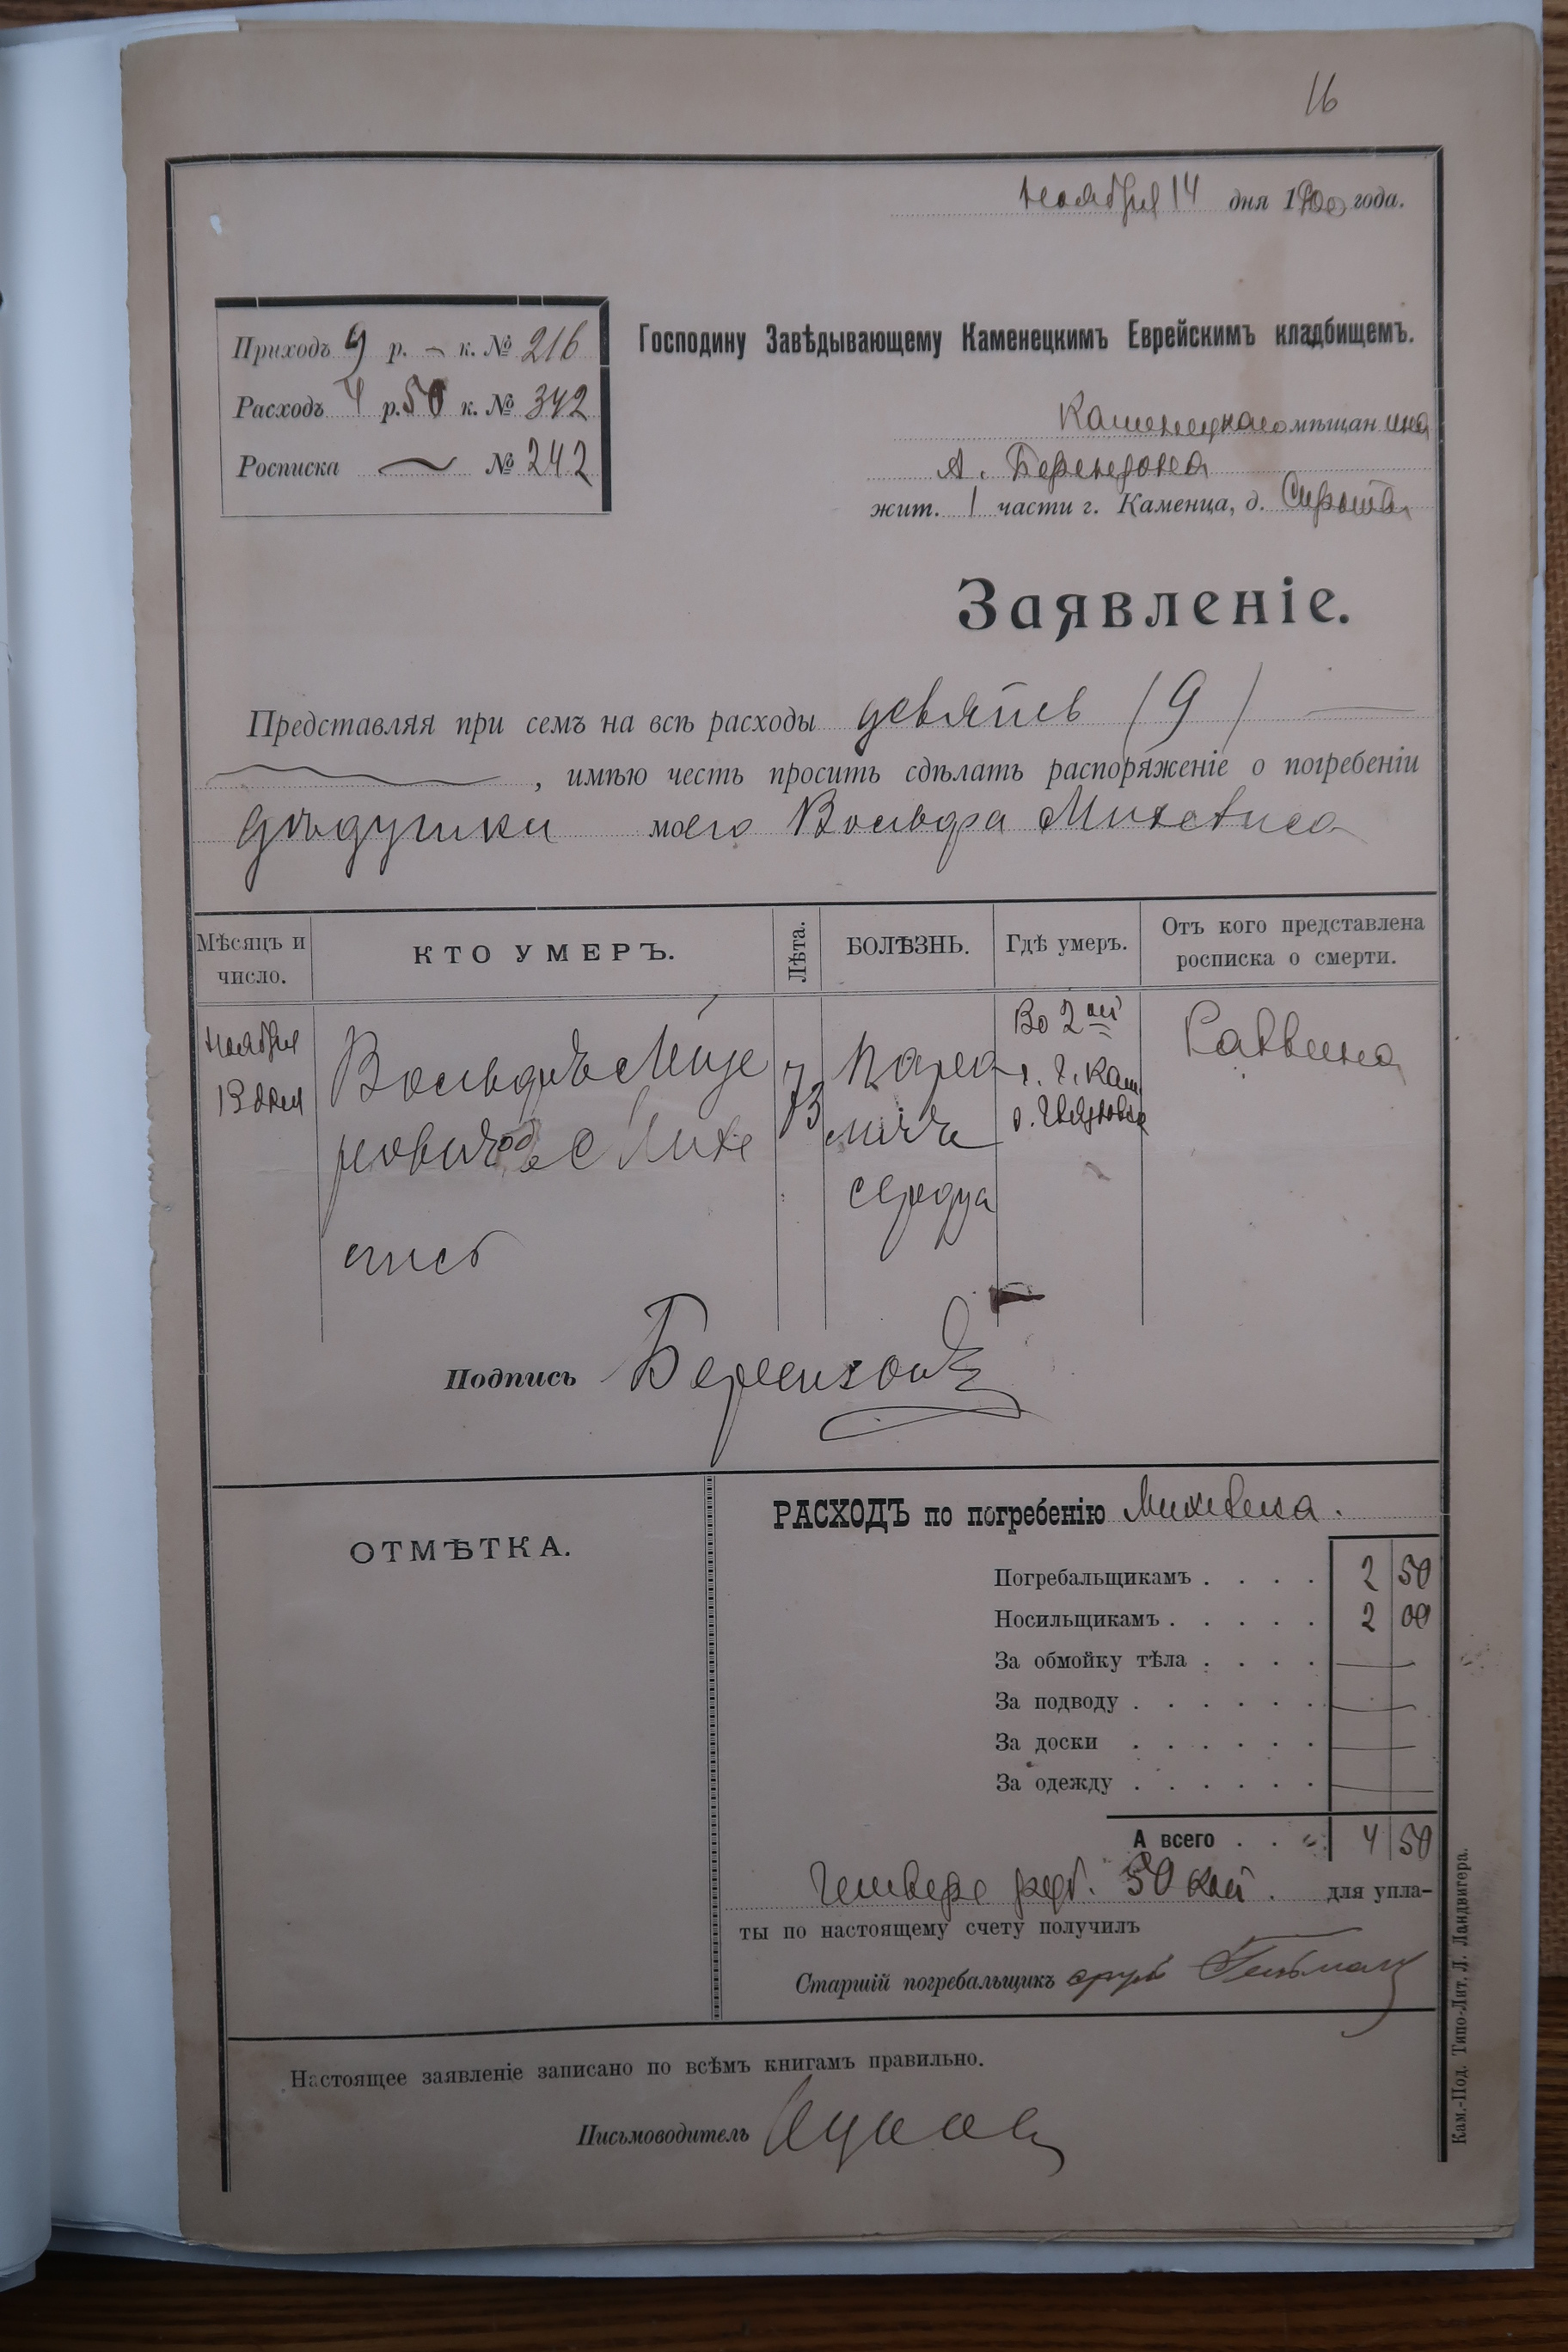 16
Ноября 14 дня 1900 года.
Приходъ 9 р. – к. № 216
Расходъ 4 р. 50 к. № 342
Росписка № 242
Господину Завѣдывающему Каменецкимъ Еврейскимъ кладбищемъ.
Каменецкаго мѣщанина
А. Беренzона
жит. 1 части г. Каменца, д. Сирота
Заявленіе.
Представляя при семъ на всѣ расходы девять (9)
, имѣю честь просить сдѣлать распоряженіе о погребеніи
дѣдушки моего Вольфа
Мѣсяцъ и число.
КТО УМЕРЪ.
Лѣта.
БОЛѢЗНЬ.
Гдѣ умеръ.
Отъ кого представлена росписка о смерти.
Ноября
13 дня
Вольфъ
73
сердца
Во 2ой
ч. г. Кам
Раввина
Подпись
ОТМѢТКА.
РАСХОДЪ по погребенію
Погребальщикамъ . . . . 2 50
Носильщикамъ . . . . . 2 00
За обмойку тѣла . . . .
За подводу . . . . . .
За доски . . . . . .
За одежду . . . . . .
А всего . . . 4 50
Четыре руб. 50 коп. для упла-
ты по настоящему счету получилъ
Старшій погребальщикъ
Настоящее заявленіе записано по всѣмъ книгамъ правильно.
Письмоводитель
Кам.-Под. Типо-Лит. Л. Ландвигера.